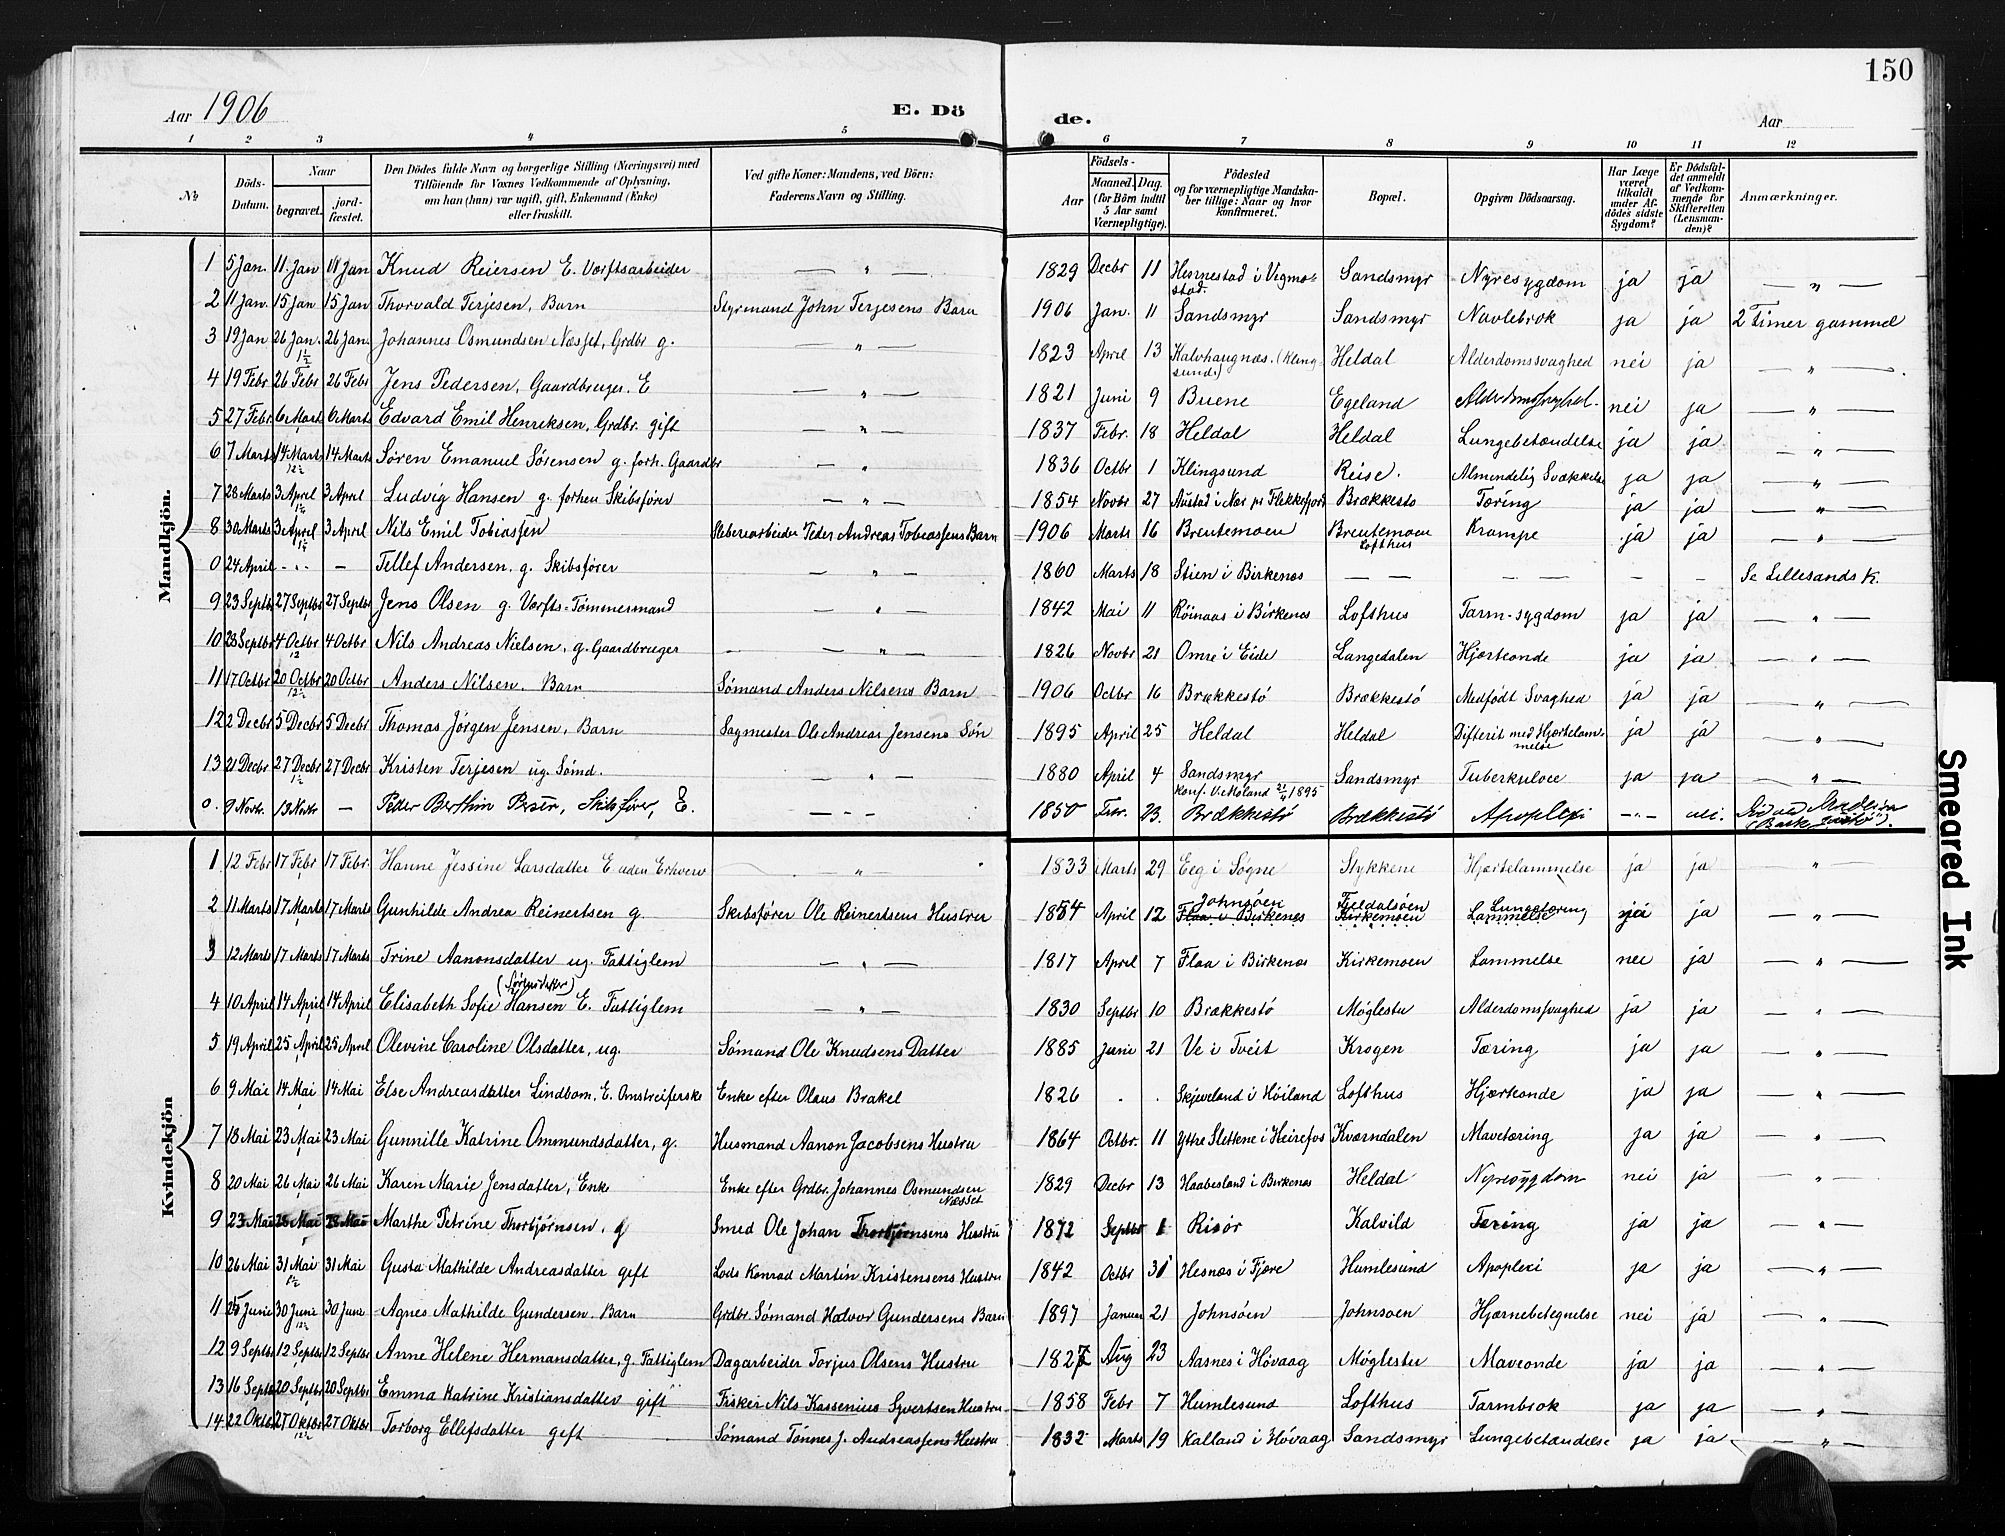 150
Aar 1906 E. Dö de. Aar
1 2 3 4 5 6 7 8 9 10 11 12
№ Döds-Datum. Naar begravet. jord-fæstet. Den Dödes fulde Navn og borgerlige Stilling (Næringsvei) med Tilföiende for Voxnes Vedkommende af Oplysning, om han (hun) var ugift, gift, Enkemand (Enke) eller fraskilt. Ved gifte Koner: Mandens, ved Börn: Faderens Navn og Stilling. Födsels- Aar Maaned. Dag. (for Börn indtil 5 Aar samt Værnepligtige). Födested og for værnepligtige Mandskaber tillige: Naar og hvor konfirmeret. Bopæl. Opgiven Dödsaarsag. Har Læge været tilkaldt under Afdödes sidste Sygdom? Er Dödsfaldet anmeldt af Vedkommende for Skifteretten (Lensmanden)? Anmærkninger.
Mandkjön.
1 5 Jan. 11. Jan 11 Jan Knud Reiersen E. Værftsarbeider — " — 1829 Decbr 11 Hesnestad i Vegmostad. Sandsmyr Nyresygdom ja ja — " —
2 11 Jan. 15 Jan 15 Jan Thorvald Terjesen, Barn Styrmand John Terjesens Barn 1906 Jan. 11 Sandsmyr Sandsmyr Navlebrok ja ja 2 Timer gammel
3 19 Jan 26 Jan. 1½ 26 Jan. Johannes Osmundsen Næsset, Grdbr g. — " — 1823 April 13 Kalvhaugnæs. (Klingsund.) Heldal Alderdomssvaghed nei ja — " —
4 19 Febr 26 Febr 26 Febr Jens Pedersen, Gaardbruger. E — " — 1821 Juni 9 Buene Egeland nei ja — " —
5 27 Febr. 6 Marts 6 Marts Edvard Emil Henriksen, Grdbr. gift — " — 1837 Febr. 18 Heldal Heldal Lungebetændelse ja ja — " —
6 7 Marts 14 Marts 12½ 14 Marts Søren Emanuel Sørensen g. forh. Gaardbr — " 1836 Octbr 1 Klingsund Reise. Almindelig Svækkelse ja ja — " —
7 28 Marts 3 April 1½ 3 April Ludvig Hansen g. forhen Skibsfører — " — 1854 Novbr 27 Austad i Næs pr Flekkefjord Brækkestø Tæring ja ja — " —
8 30 Marts 3 April 3 April Nils Emil Tobiassen Sliberiarbeider Peder Andreas Tobiassens Barn 1906 Marts 16 Brentemoen Brentemoen Lofthus Krampe ja ja — " —
0 24 April - . . — Tellef Andersen. g. Skibsfører — " — 1860 Marts 18 Stien i Birkenæs — — — — — — Se Lillesands K.
9 23 Septbr 27 Septbr 27 Septbr Jens Olsen g. Værfts-Tømmermand — " — 1842 Mai 11 Røinaas i Birkenes Lofthus Tarm-sygdom ja ja — " —
10 28 Septbr 4 Octbr 12 4 Octbr Nils Andreas Nielsen, g. Gaardbruger — " — 1826 Novbr 21 Omre i Eide Langedalen Hjerteonde ja ja — " —
11 17 Octbr 20 Octbr 12½ 20 Octbr Anders Nilsen. Barn Sømand Anders Nilsens Barn 1906 Octbr 16 Brækkestø Brækkestø Medfødt Svaghed ja ja — " —
12 2 Decbr 5 Decbr 5 Decbr Thomas Jørgen Jensen, Barn Sagmester Ole Andreas Jensens Søn 1895 April 25 Heldal Heldal Difterit med Hjertelammelse ja ja — " —
13 21 Decbr 27 Decbr 1½ 27 Decbr Kristen Terjesen ug. Sømd. — " — 1880 April 4 Sandsmyr Konf. V. Moland 21/4 1895 Sandsmyr Tuberkulose ja ja — " —
0. 9 Novbr. 13 Novbr — Peder Berthin, Skibsfører, E. — " — 1850 Febr. Brækkestø Brækkestø Apoplexi — " —
Kvindekjön
1 12 Febr 17 Febr 17 Febr. Hanne Jessine Larsdatter E uden Erhverv — " — 1833 Marts 29 Eeg i Søgne Stykkene Hjertelammelse ja ja " —
2 11 Marts 17 Marts 17 Marts Gunhilde Andrea Reinertsen g. Skibsfører Ole Reinertsens Hustru 1854 April 12 Johnsøen Flaa i Birkenes Tjeldalsøen Kirkemoen Lungetæring Lammelse ja — " —
3 12 Marts 17 Marts 17 Marts Trine Aanonsdatter ug. Fattiglem — " — 1817 April 7 Flaa i Birkenes Kirkemoen Lammelse nei ja — " —
4 10 April 14 April 14 April Elisabeth Sofie Hansen (Sørensdatter) E. Fattiglem — " — 1830 Septbr 10 Brækkestø Møglestu Alderdomssvaghed ja ja — " —
5 19 April 25 April 25 April Olevine Caroline Olsdatter, ug. Sømand Ole Knudsens Datter 1885 Juni 21 Ve i Tveit Krogen Tæring ja ja — " —
6 9 Mai 14 Mai 14 Mai Else Andreasdatter Lindbom. E. Omstreiferske Enke efter Olaus Brakel 1826 . . Skjeveland i Høiland Lofthus Hjerteonde ja ja — " —
7 18 Mai 23 Mai 23 Mai Gunnille Katrine Ommundsdatter, g. Husmand Aanon Jacobsens Hustru 1864 Octbr. 11 Ytre Slettene i Heirefos Kværndalen Mavetæring ja ja — " —
8 20 Mai 26 Mai 26 Mai Karen Marie Jensdatter, Enke Enke efter Grdbr. Johannes Osmundsen Næsset 1829 Decbr 13 Haabesland i Birkenes Heldal Nyresygdom nei ja — " —
9 23 Mai 28 Mai 28 Mai Marthe Petrine Thorbjørnsen. g Smed Ole Johan Thorbjørnsens Hustru 1872 Septbr 1 Risør Kalvild Tæring ja ja — " —
10 26 Mai 31 Mai 1½ 31 Mai Gusta Mathilde Andreasdatter gift Lods Konrad Martin Kristensens Hustru 1842 Octbr 31 Hesnæs i Fjære Humlesund Apoplexi ja ja — " —
11 25 Juni 30 Juni 12½ 30 Juni Agnes Mathilde Gundersen. Barn Grdbr. Sømand Halvor Gundersens Barn 1897 Januar 21 Johnsøen Johnsøen Hjernebetegnelse nei ja — " —
12 9 Septbr 12 Septbr 12 Septbr Anne Helene Hermansdatter, g. Fattiglem Dagarbeider Torjus Olsens Hustru 1827 Aug 23 Aasnes i Høvaag Møglestu Maveonde ja ja — " —
13 16 Septbr 20 Septbr 20 Septbr Emma Katrine Kristiansdatter gift Fisker Nils Kassenius Syvertsen Hustru 1858 Febr 7 Humlesund Lofthus Tarmbrok ja ja — " —
14 22 Oktbr 27 Oktbr 12½ 27 Oktbr Torborg Ellefsdatter gift Sømand Tønnes J. Andreassens Hustru 1832 Marts 19 Kalland i Høvaag Sandsmyr Lungebetændelse ja ja — " —
Smeared Ink